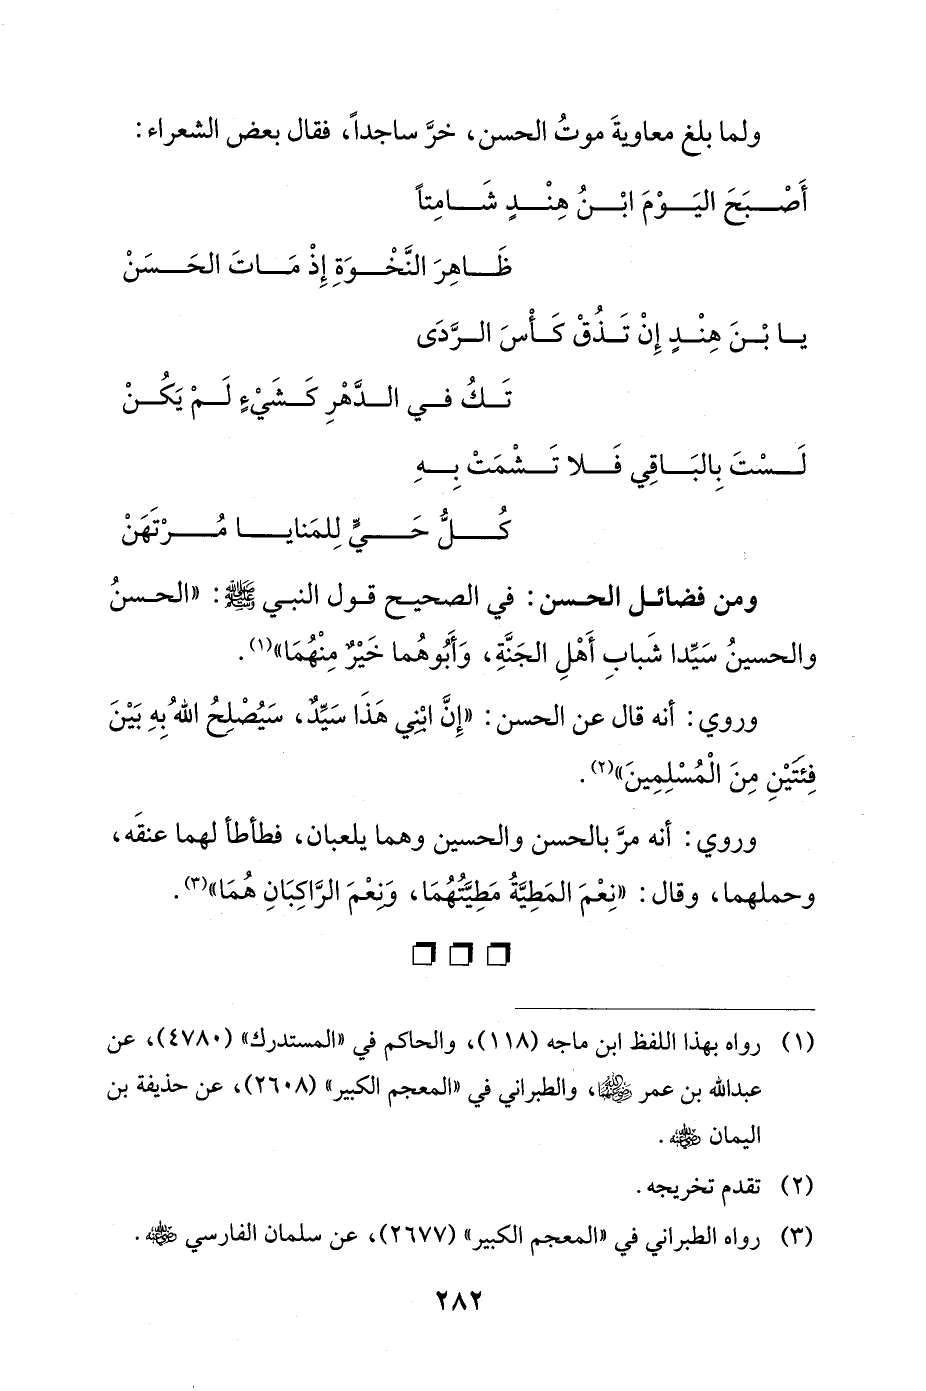 ولما بلغ معاويةَ موتُ الحسن، خرَّ ساجداً، فقال بعض الشعراء:
أَصْبَحَ اليَوْمَ ابْنُ هِنْدٍ شَامِتاً
ظَاهِرَ النَّخْوَةِ إِذْ مَاتَ الحَسَنْ
يا بْنَ هِنْدٍ إِنْ تَذُقْ كَأْسَ الرَّدَى
تَكُ في الدَّهْرِ كَشَيْءٍ لَمْ يَكُنْ
لَسْتَ بِالبَاقِي فَلا تَشْمَتْ بِهِ
كُلُّ حَيٍّ لِلمَنايا مُرْتَهَنْ
ومن فضائل الحسن: في الصحيح قول النبي ﷺ: «الحسنُ
والحسينُ سَيِّدا شَبابِ أَهْلِ الجَنَّةِ، وَأَبُوهُما خَيْرٌ مِنْهُمَا»(١).
وروي: أنه قال عن الحسن: «إِنَّ ابْنِي هَذَا سَيِّدٌ، سَيُصْلِحُ اللهُ بِهِ بَيْنَ
فِئَتَيْنِ مِنَ الْمُسْلِمِينَ»(٢).
وروي: أنه مرَّ بالحسن والحسين وهما يلعبان، فطأطأ لهما عنقَه،
وحملهما، وقال: «نِعْمَ المَطِيَّةُ مَطِيَّتُهُمَا، وَنِعْمَ الرَّاكِبَانِ هُمَا»(٣).
(١) رواه بهذا اللفظ ابن ماجه (١١٨)، والحاكم في «المستدرك» (٤٧٨٠)، عن
عبدالله بن عمر رضي الله عنهما، والطبراني في «المعجم الكبير» (٢٦٠٨)، عن حذيفة بن
اليمان رضي الله عنه.
(٢) تقدم تخريجه.
(٣) رواه الطبراني في «المعجم الكبير» (٢٦٧٧)، عن سلمان الفارسي رضي الله عنه.
٢٨٢